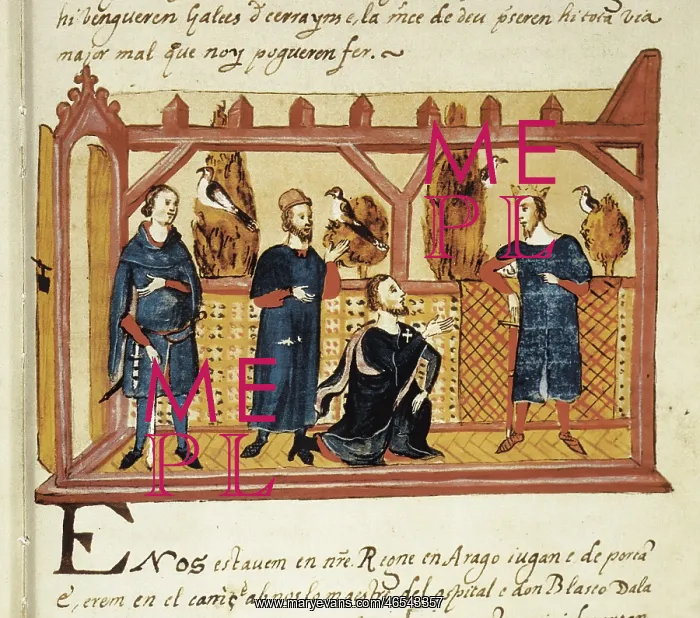 hi vengueren Galees de cerrayns e, la mce de deu pseren hi tota via
major mal que noy pogueren fer.
ME
PL
ME
PL
ENOS estavem en nre. Regne en Arago iugan e de
e, erem en el ab nos lo maestre del ospital e don Blasco Dala
www.maryevans.com/46549357